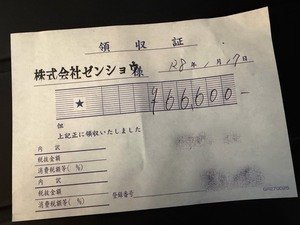 領収証
株式会社ゼンショウ様
R8年1月19日
★
¥66,600-
但
上記正に領収いたしました
内訳
税抜金額
消費税額等(%)
内訳
税抜金額
消費税額等(%)
登録番号